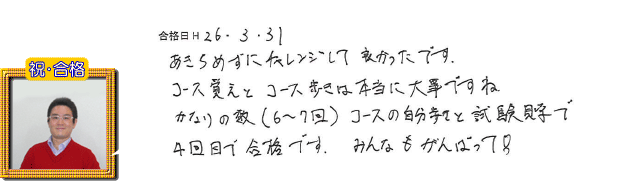 祝・合格
合格日 H 26・3・31
あきらめずにチャレンジして 良かったです.
コース覚えと コース歩きは本当に大事ですね
かなりの数 (6〜7回) コースの自分歩きと 試験見学で
4回目で合格です. みんなも がんばって!!